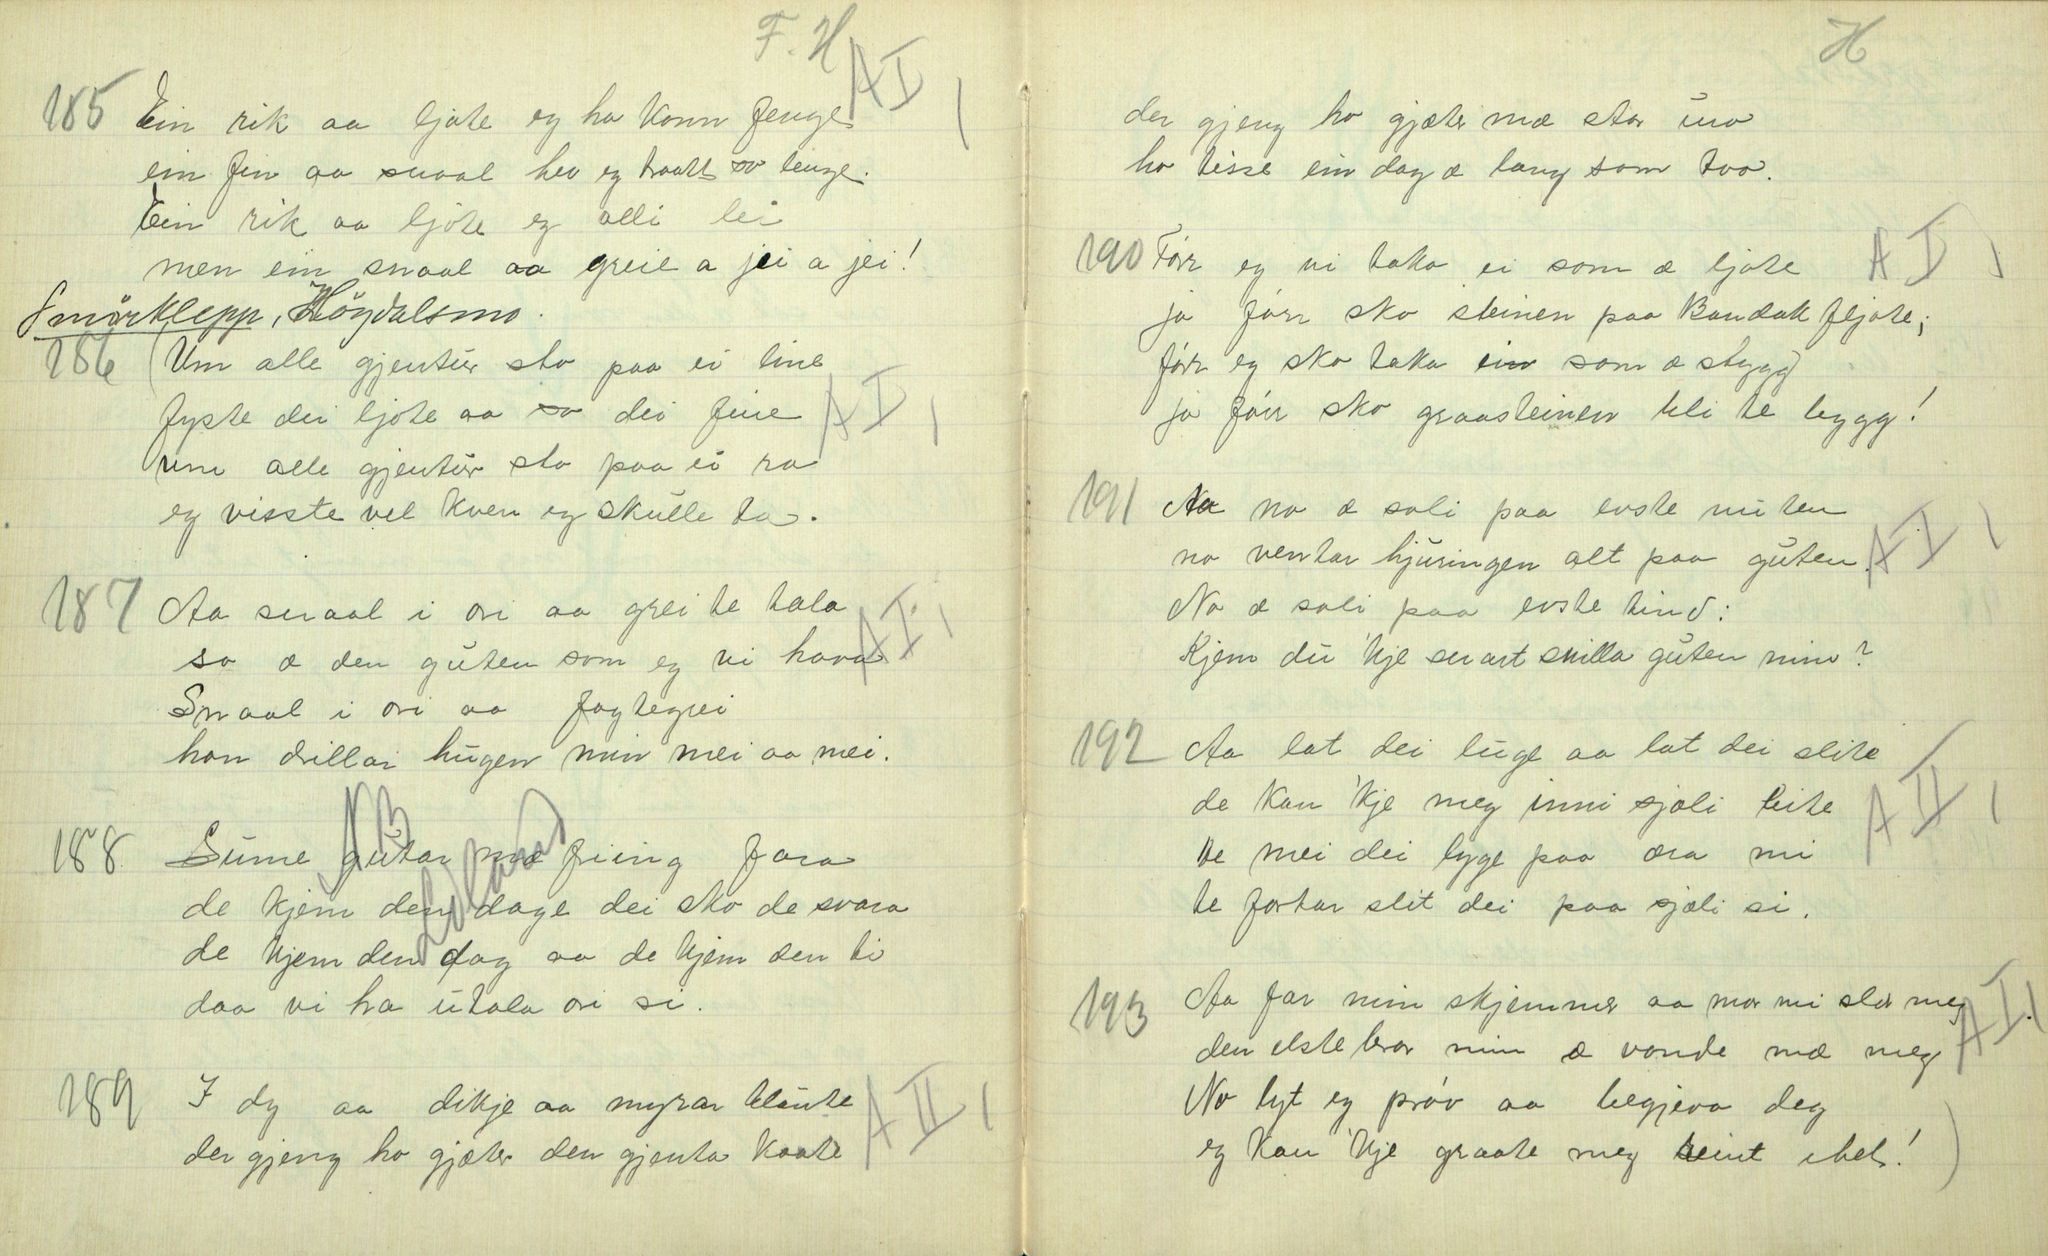 F. H
185 Ein rik aa ljote eg ha konn fenge AI 1
ein fin aa snaal hev eg traatt so lenge.
Ein rik aa ljote eg alli lei
men ein snaal aa greie a jei a jei!
Smörklepp, Högdalsmo.
186 (Um alle gjentur sto paa ei line
fyste dei ljote aa so dei fine AI 1
um alle gjentur sto paa ei ra
eg visste vel kven eg skulle ta.
187 Aa snaal i ori aa grei te tala AI 1
so æ den guten som eg vi hava
Snaal i ori aa fagtegrei
han drillar hugen min mei aa mei.
NB Liland
188 Sume gutar mæ friing fara
de kjem den dage dei sko de svara
de kjem den dag aa de kjem den ti
daa vi ha utala ori si.
189 I dy aa dikje aa myrar blaute A II 1
der gjeng ho gjæter den gjenta kaate
H
der gjeng ho gjæter mæ stor uro
ho tisse ein dag æ lang som two.
190 Förr eg vi taka ei som æ ljote A I 1
ja förr sko steinen paa Bandak fljote;
förr eg sko taka ein som æ stygg
ja förr sko graasteinen bli te bygg!
191 Aa no æ soli paa evste nuten A I 1
no ventar hjuringen alt paa guten.
No æ soli paa evste tind:
Kjem du 'kje snart snilla guten min?
192 Aa lat dei luge aa lat dei slite
de kan 'kje meg inni sjæli bite A II 1
De mei dei lyge paa æra mi
te fortar slit dei paa sjæli si.
193 Aa far min skjemmer aa mor mi slær meg A I 1
den elste bror min æ vonde mæ meg
No lyt eg pröv aa begjeva deg
eg kan 'kje graate meg reint ihel!)